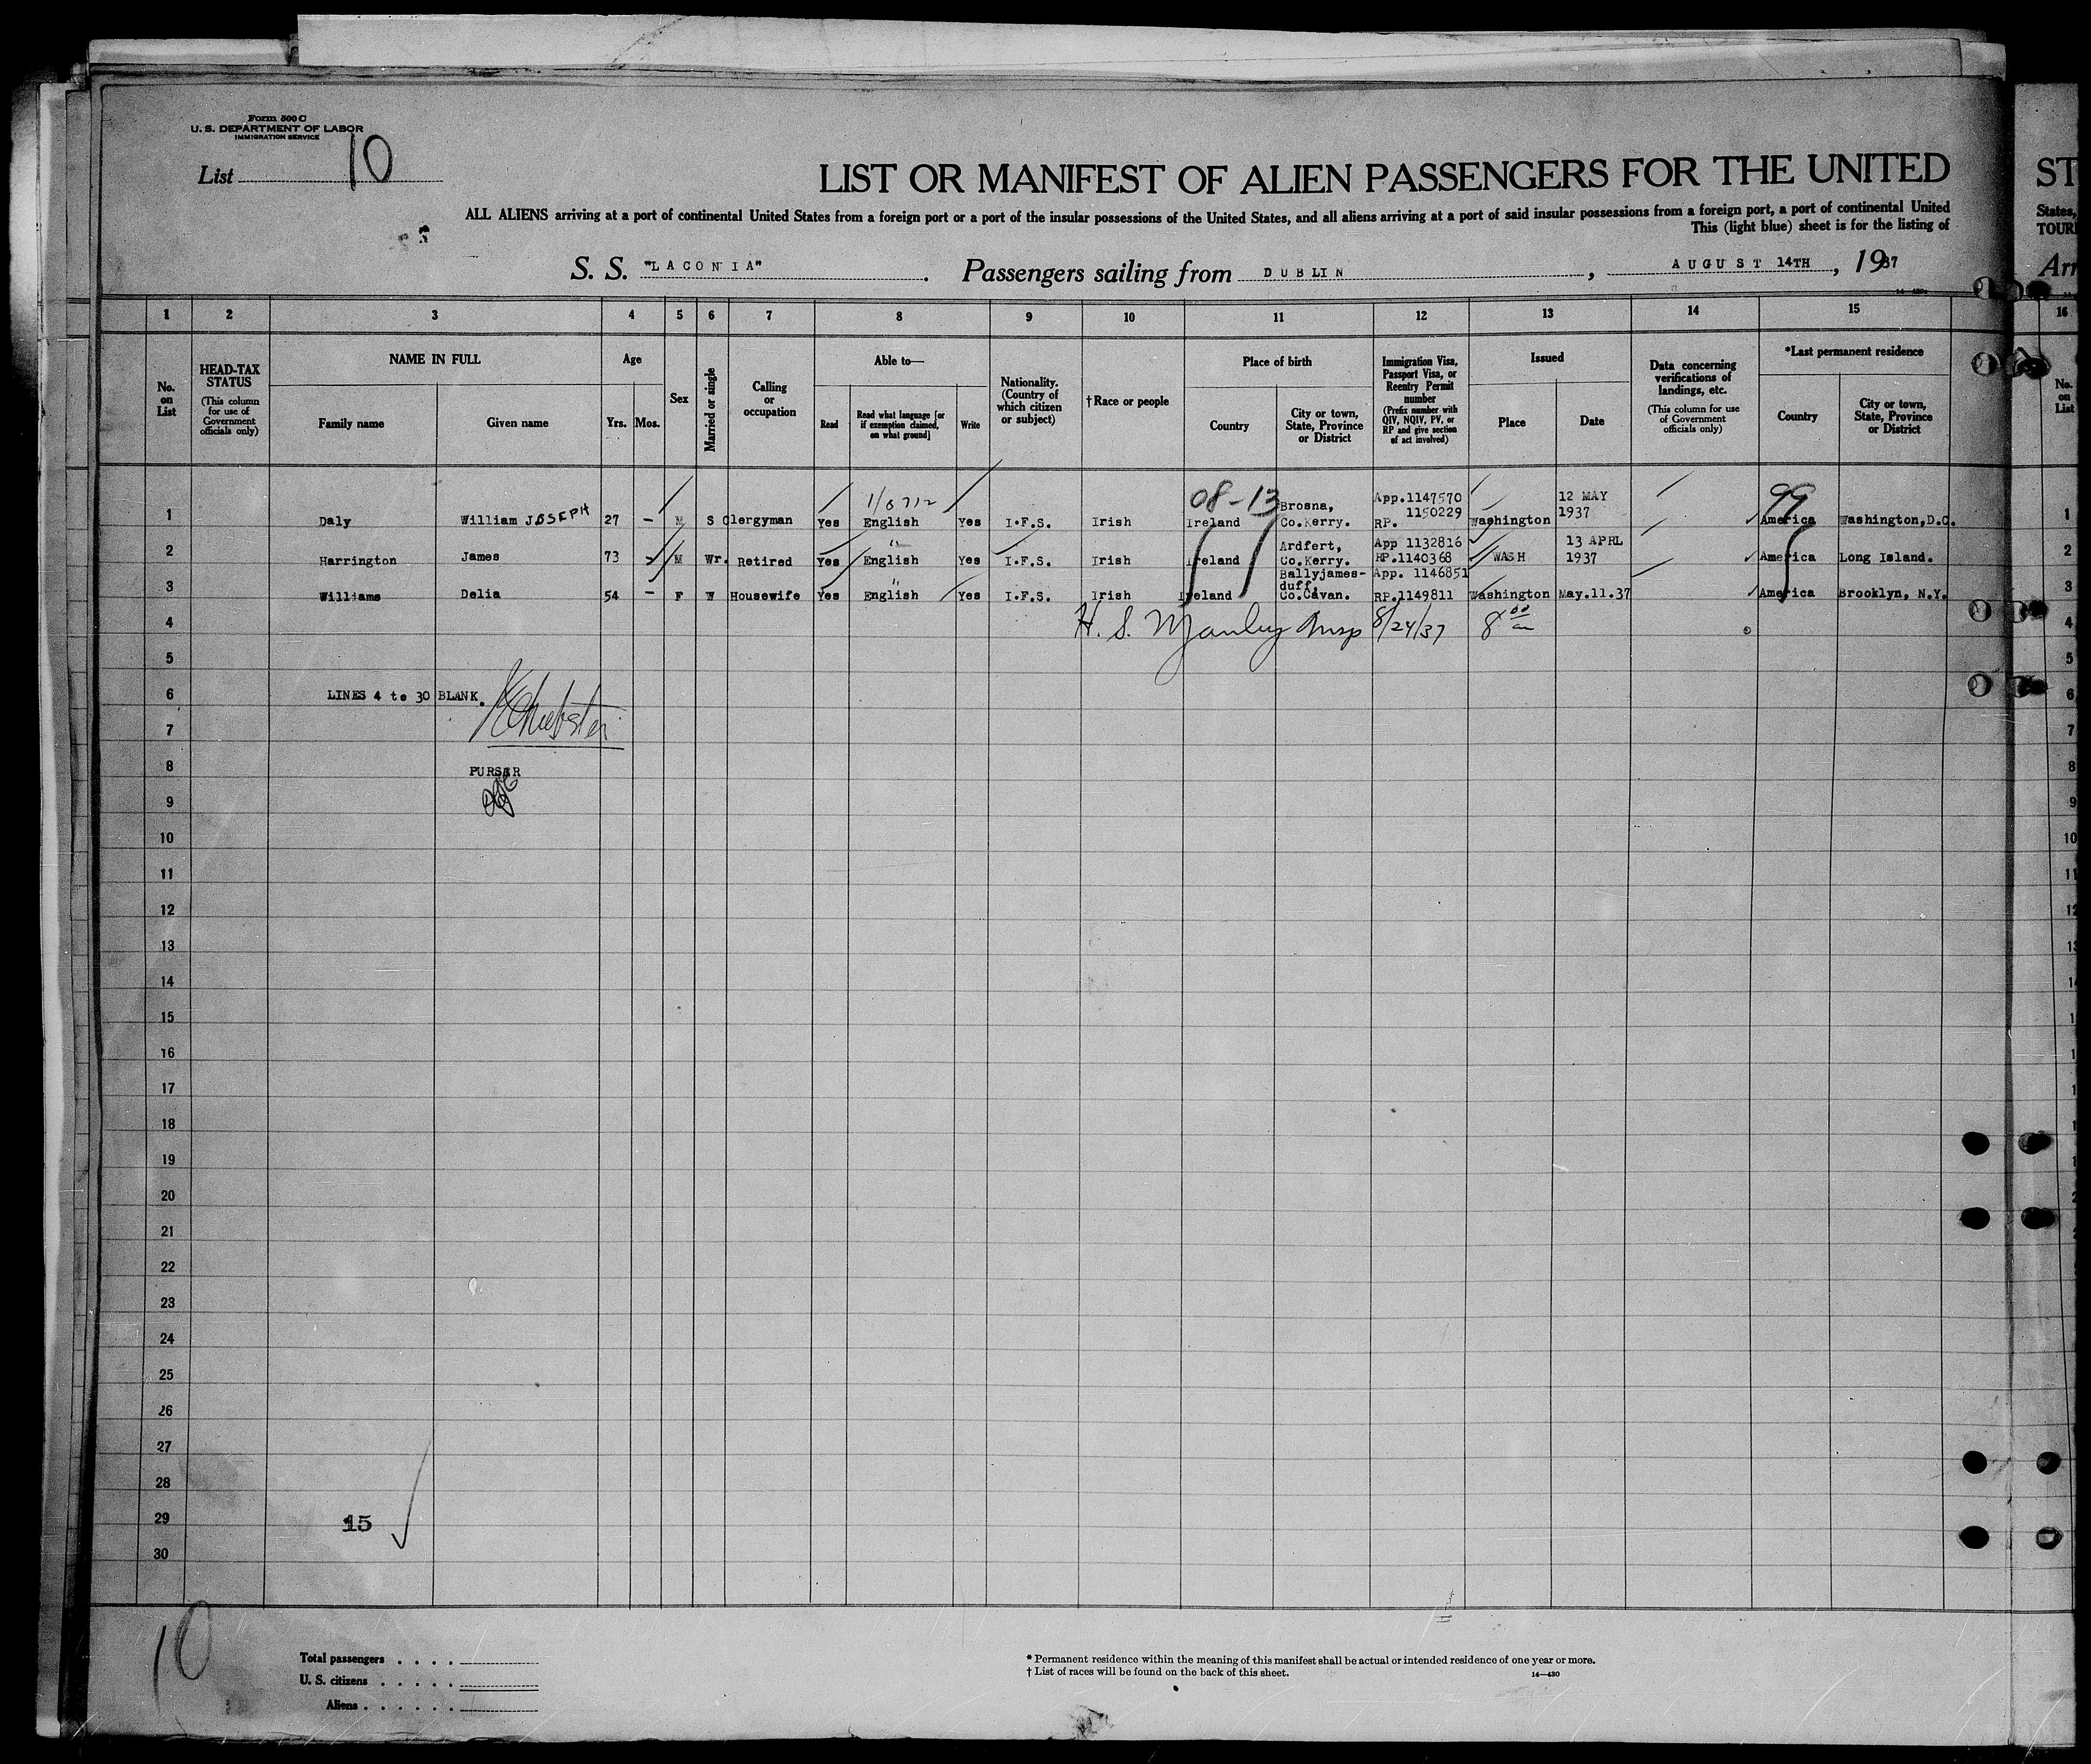 Form 500 C
U. S. DEPARTMENT OF LABOR
IMMIGRATION SERVICE
List 10
LIST OR MANIFEST OF ALIEN PASSENGERS FOR THE UNITED
ST
ALL ALIENS arriving at a port of continental United States from a foreign port or a port of the insular possessions of the United States, and all aliens arriving at a port of said insular possessions from a foreign port, a port of continental United
States,
This (light blue) sheet is for the listing of
TOUR
S. S. "LACONIA". Passengers sailing from DUBLIN, AUGUST 14TH, 1937
Arr
1 2 3 4 5 6 7 8 9 10 11 12 13 14 15 16
No. on List
HEAD-TAX STATUS
(This column for use of Government officials only)
NAME IN FULL
Family name
Given name
Age
Yrs. Mos.
Sex
Married or single
Calling or occupation
Able to—
Read
Read what language [or if exemption claimed, on what ground]
Write
Nationality. (Country of which citizen or subject)
† Race or people
Place of birth
Country
City or town, State, Province or District
Immigration Visa, Passport Visa, or Reentry Permit number
(Prefix number with QIV, NQIV, PV, or RP and give section of act involved)
Issued
Place
Date
Data concerning verifications of landings, etc.
(This column for use of Government officials only)
*Last permanent residence
Country
City or town, State, Province or District
No. on List
08-13 99
1 Daly William JOSEPH 27 – M S Clergyman Yes English Yes I.F.S. Irish Ireland Brosna, Co.Kerry. App.1147570 RP. 1150229 Washington 12 MAY 1937 America Washington,D.C. 1
2 Harrington James 73 – M Wr. Retired Yes English Yes I.F.S. Irish Ireland Ardfert, Co.Kerry. App 1132816 RP.1140368 WASH 13 APRL 1937 America Long Island. 2
3 Williams Delia 54 – F W Housewife Yes English Yes I.F.S. Irish Ireland Ballyjames-duff, Co.Cavan. App. 1146851 RP.1149811 Washington May.11.37 America Brooklyn, N.Y. 3
4 H. S. Manley Insp 8/24/37 8 00 am 4
5 5
6 LINES 4 to 30 BLANK. 6
7 7
8 PURSER 8
9 9
10 10
11 11
12 12
13 13
14 14
15
16
17
18
19
20
21
22
23
24
25
26
27
28
29 15
30
10
Total passengers . . . .
U. S. citizens . . . . .
Aliens . . . . . .
* Permanent residence within the meaning of this manifest shall be actual or intended residence of one year or more.
† List of races will be found on the back of this sheet.
14—430